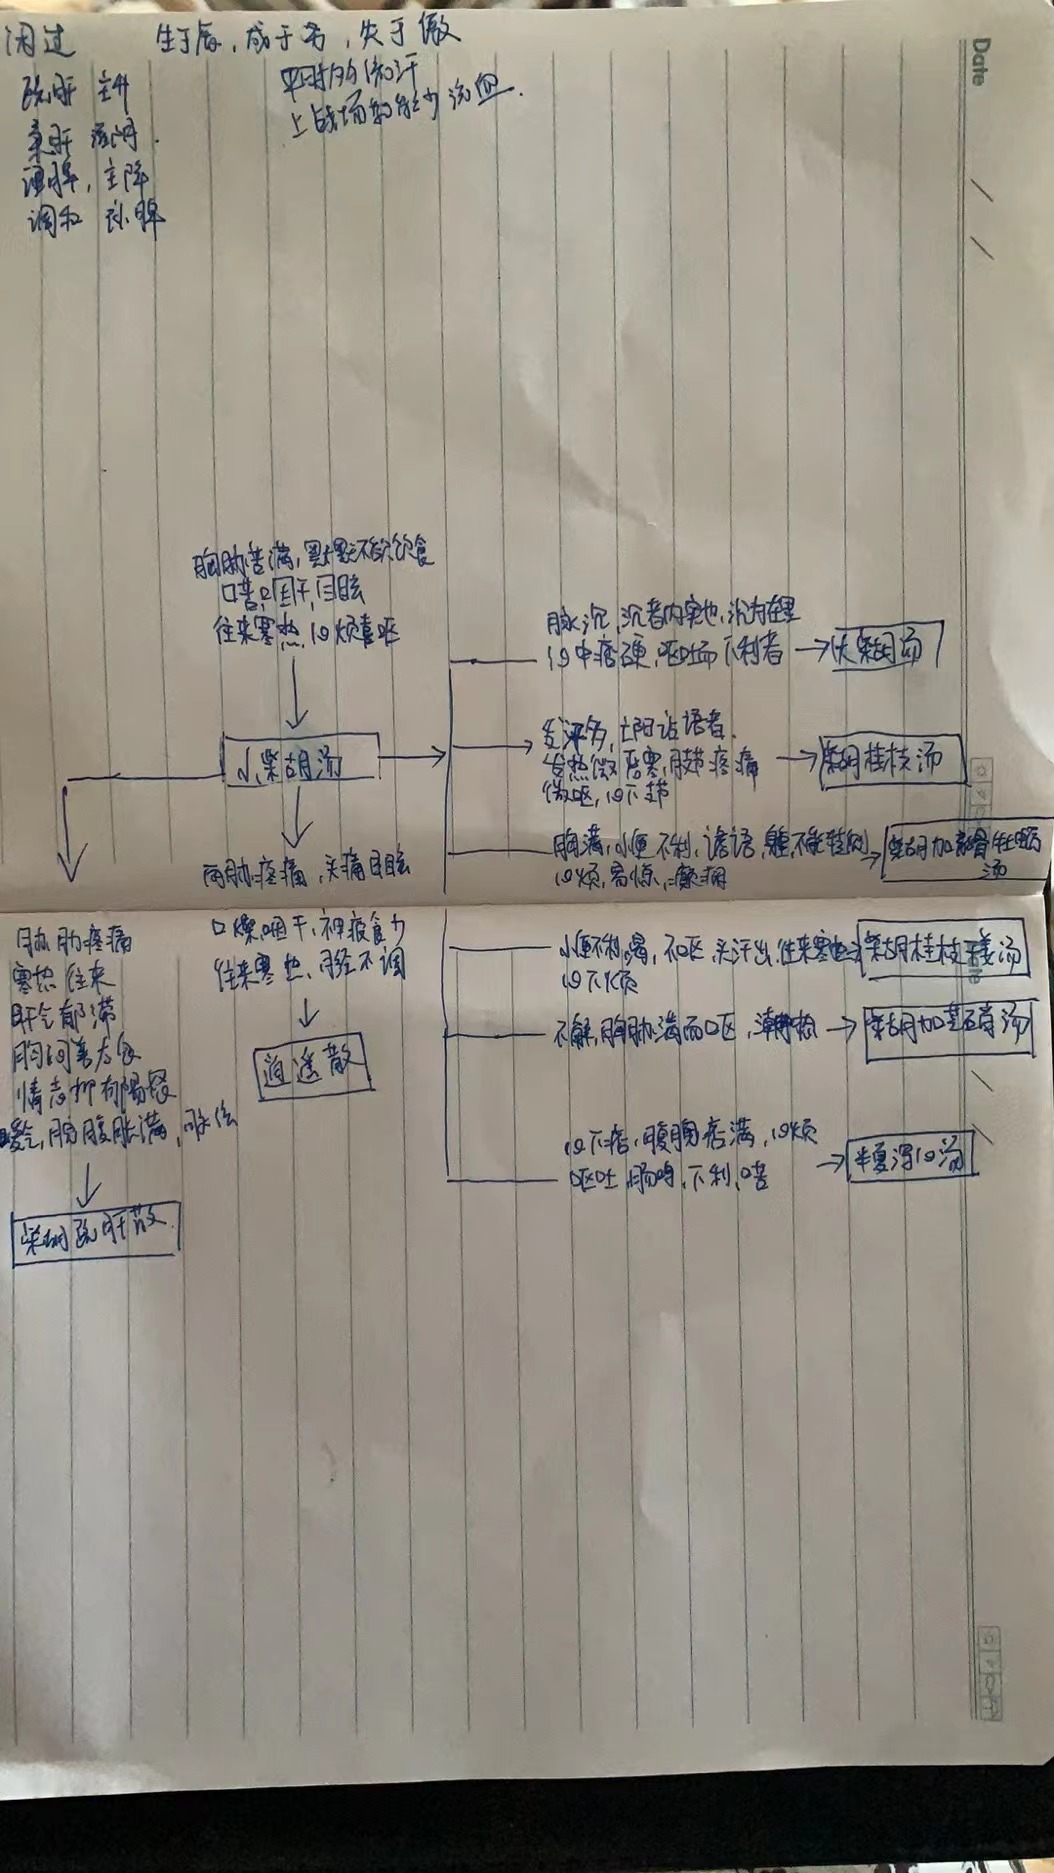 闭过
生于辰，成于书，失于傲
平时多流汗
上战场就能少流血.
疏肝 主升
柔肝 滋阴.
理脾，主降
调和 肝脾
Date
胸胁苦满，默默不欲饮食
口苦，咽干，目眩
往来寒热，心烦喜呕
小柴胡汤
脉沉，沉者内实也，沉为在里
心中痞硬，呕吐而下利者
大柴胡汤
发汗多，亡阳谵语者.
发热微恶寒，肢节疼痛
微呕，心下支节
柴胡桂枝汤
胸满，小便不利，谵语，身重，不能转侧
心烦，易惊，癫痫
柴胡加龙骨牡蛎
汤
两胁疼痛，头痛目眩
口燥咽干，神疲食少
往来寒热，月经不调
逍遥散
胁肋疼痛
寒热往来
肝气郁滞
胸闷善太息
情志抑郁易怒
嗳气，脘腹胀满，脉弦
柴胡疏肝散
小便不利，渴，不呕，头汗出，往来寒热
心下烦
柴胡桂枝干姜汤
不解，胸胁满而呕，潮热
柴胡加芒硝汤
心下痞，腹胸痞满，心烦
呕吐，肠鸣，下利，口苦
半夏泻心汤